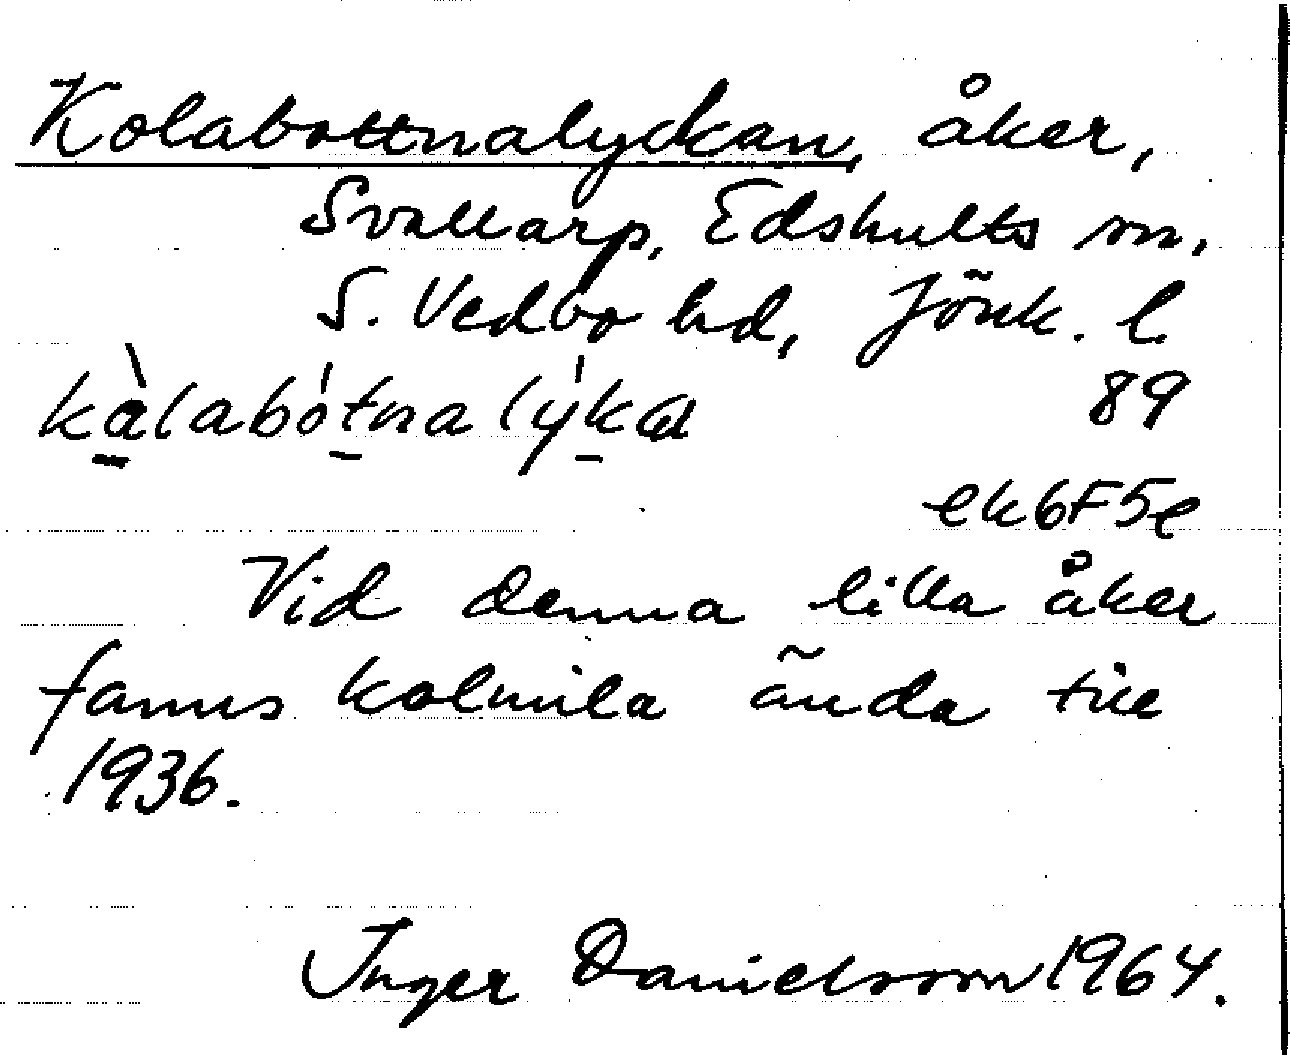 Kolabottnalyckan, åker,
Svallarp, Edshults sn,
S. Vedbo hd, Jönk. l.
kàlabótnalýka 89
ek6F5e
Vid denna lilla åker
fanns kolmila ända till
1936.
Inger Danielsson 1964.